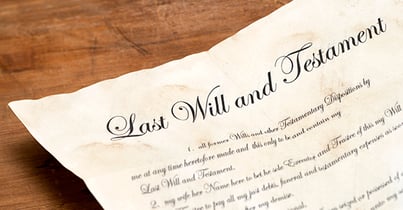 Last Will and Testament
1. all former Wills and other Testamentary Dispositions by
me at any time heretofore made and this only to be and contain my
Last Will and Testament.
2. my wife her Name here to bet be sole Executor and Trustee of this my Will
to pay all my post debts, funeral and testamentary expenses as soon
my demise.
seized or possessed of